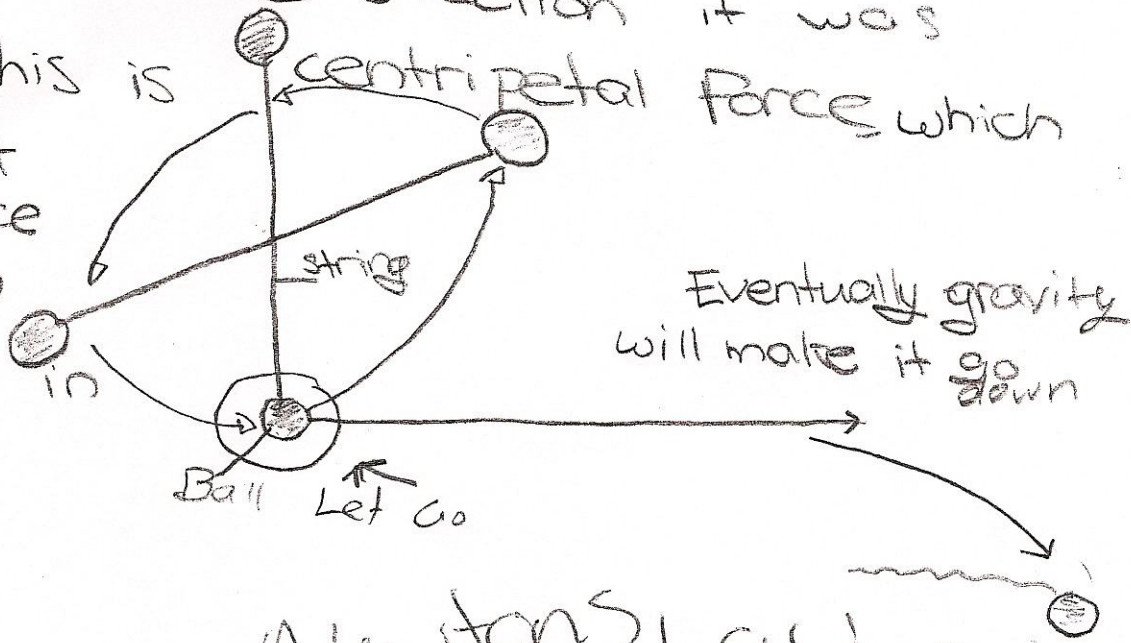 it was
his is centripetal force which
string
Eventually gravity
will make it go
down
in
Ball
Let Go